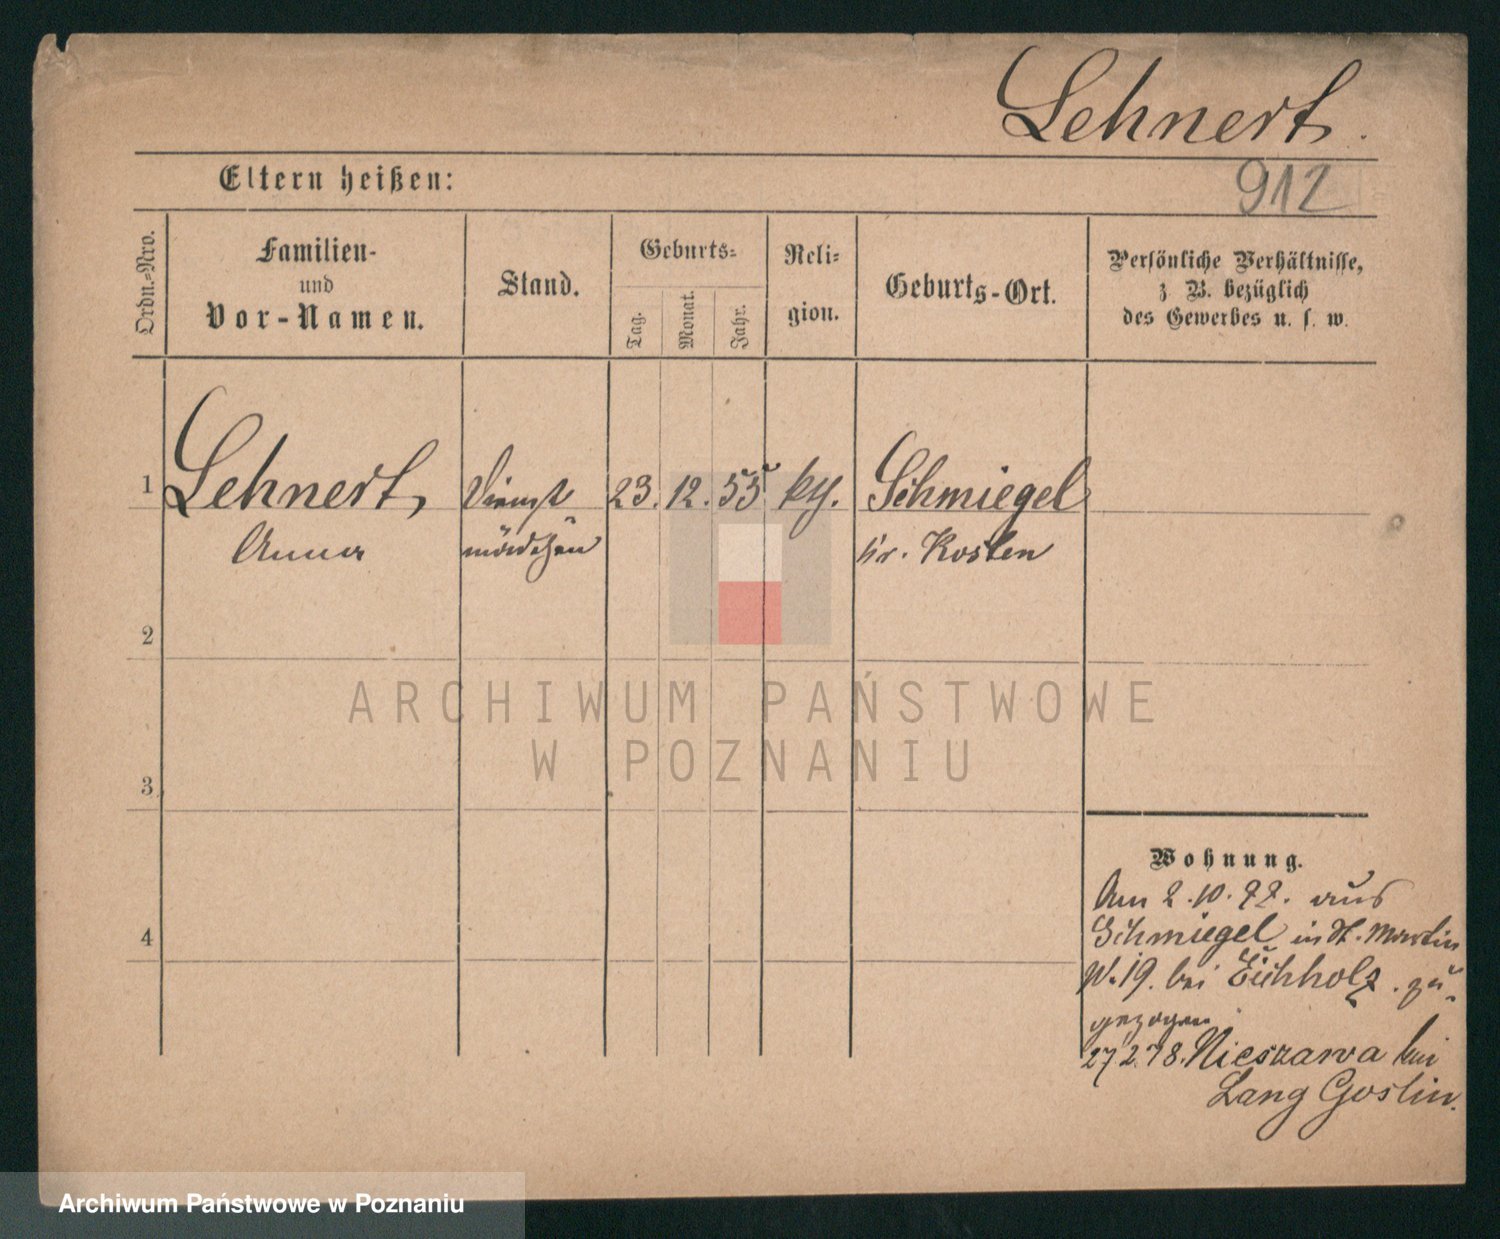 Lehnert.
912
Eltern heißen:
Ordn.-Nro.
Familien-
und
Vor-Namen.
Stand.
Geburts-
Tag.
Monat.
Jahr.
Reli-
gion.
Geburts-Ort.
Persönliche Verhältnisse,
z. B. bezüglich
des Gewerbes u. s. w.
1 Lehnert, Dienst 23. 12. 55 Schmiegel
Anna mädchen Kr. Kosten
2
3
4
ARCHIWUM PAŃSTWOWE
W POZNANIU
Wohnung.
Am 2.10.77. aus
Schmiegel in St. Martin
N. 19. bei Eichholz. zu-
gezogen
27 2.78. Nieszawa bei
Lang Goslin.
Archiwum Państwowe w Poznaniu